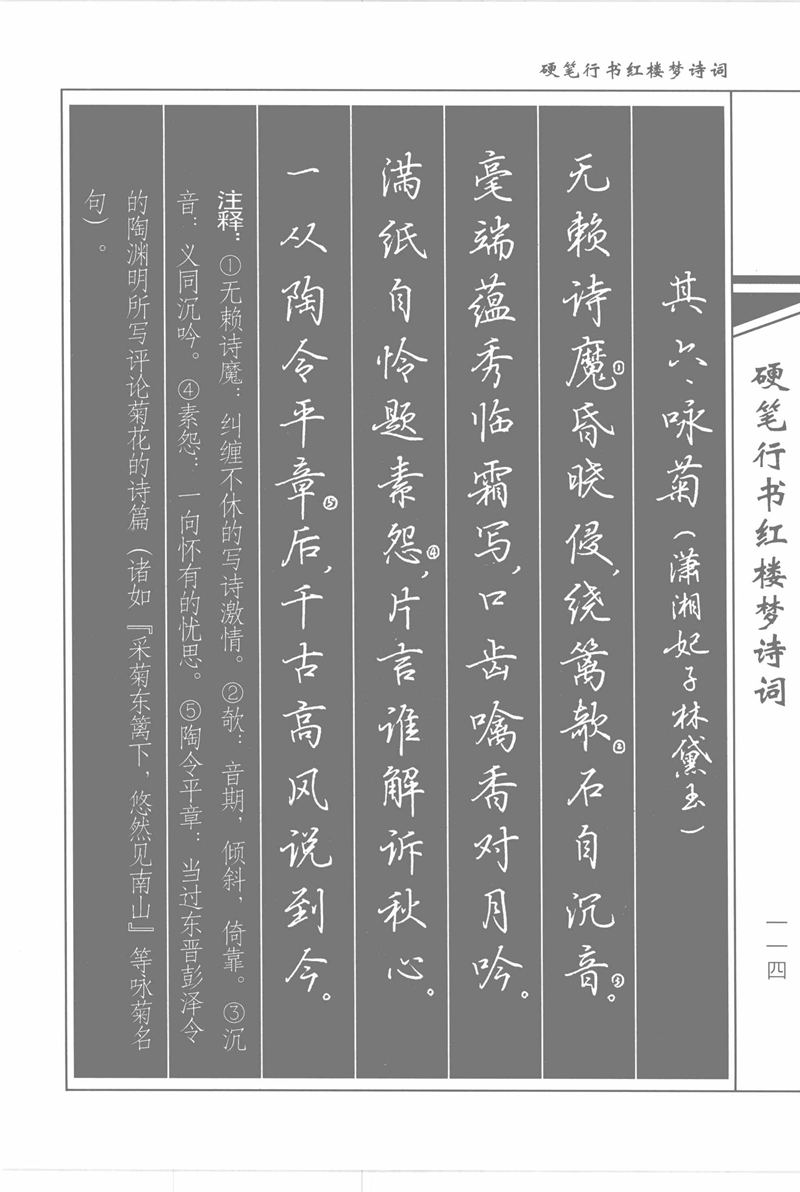 硬笔行书红楼梦诗词
其六、咏菊（潇湘妃子林黛玉）
无赖诗魔①昏晓侵，绕篱欹②石自沉音③。
毫端蕴秀临霜写，口齿噙香对月吟。
满纸自怜题素怨④，片言谁解诉秋心。
一从陶令平章⑤后，千古高风说到今。
注释：①无赖诗魔：纠缠不休的写诗激情。②欹：音期，倾斜，倚靠。③沉
音：义同沉吟。④素怨：一向怀有的忧思。⑤陶令平章：当过东晋彭泽令
的陶渊明所写评论菊花的诗篇（诸如『采菊东篱下，悠然见南山』等咏菊名
句）。
硬笔行书红楼梦诗词
一一四